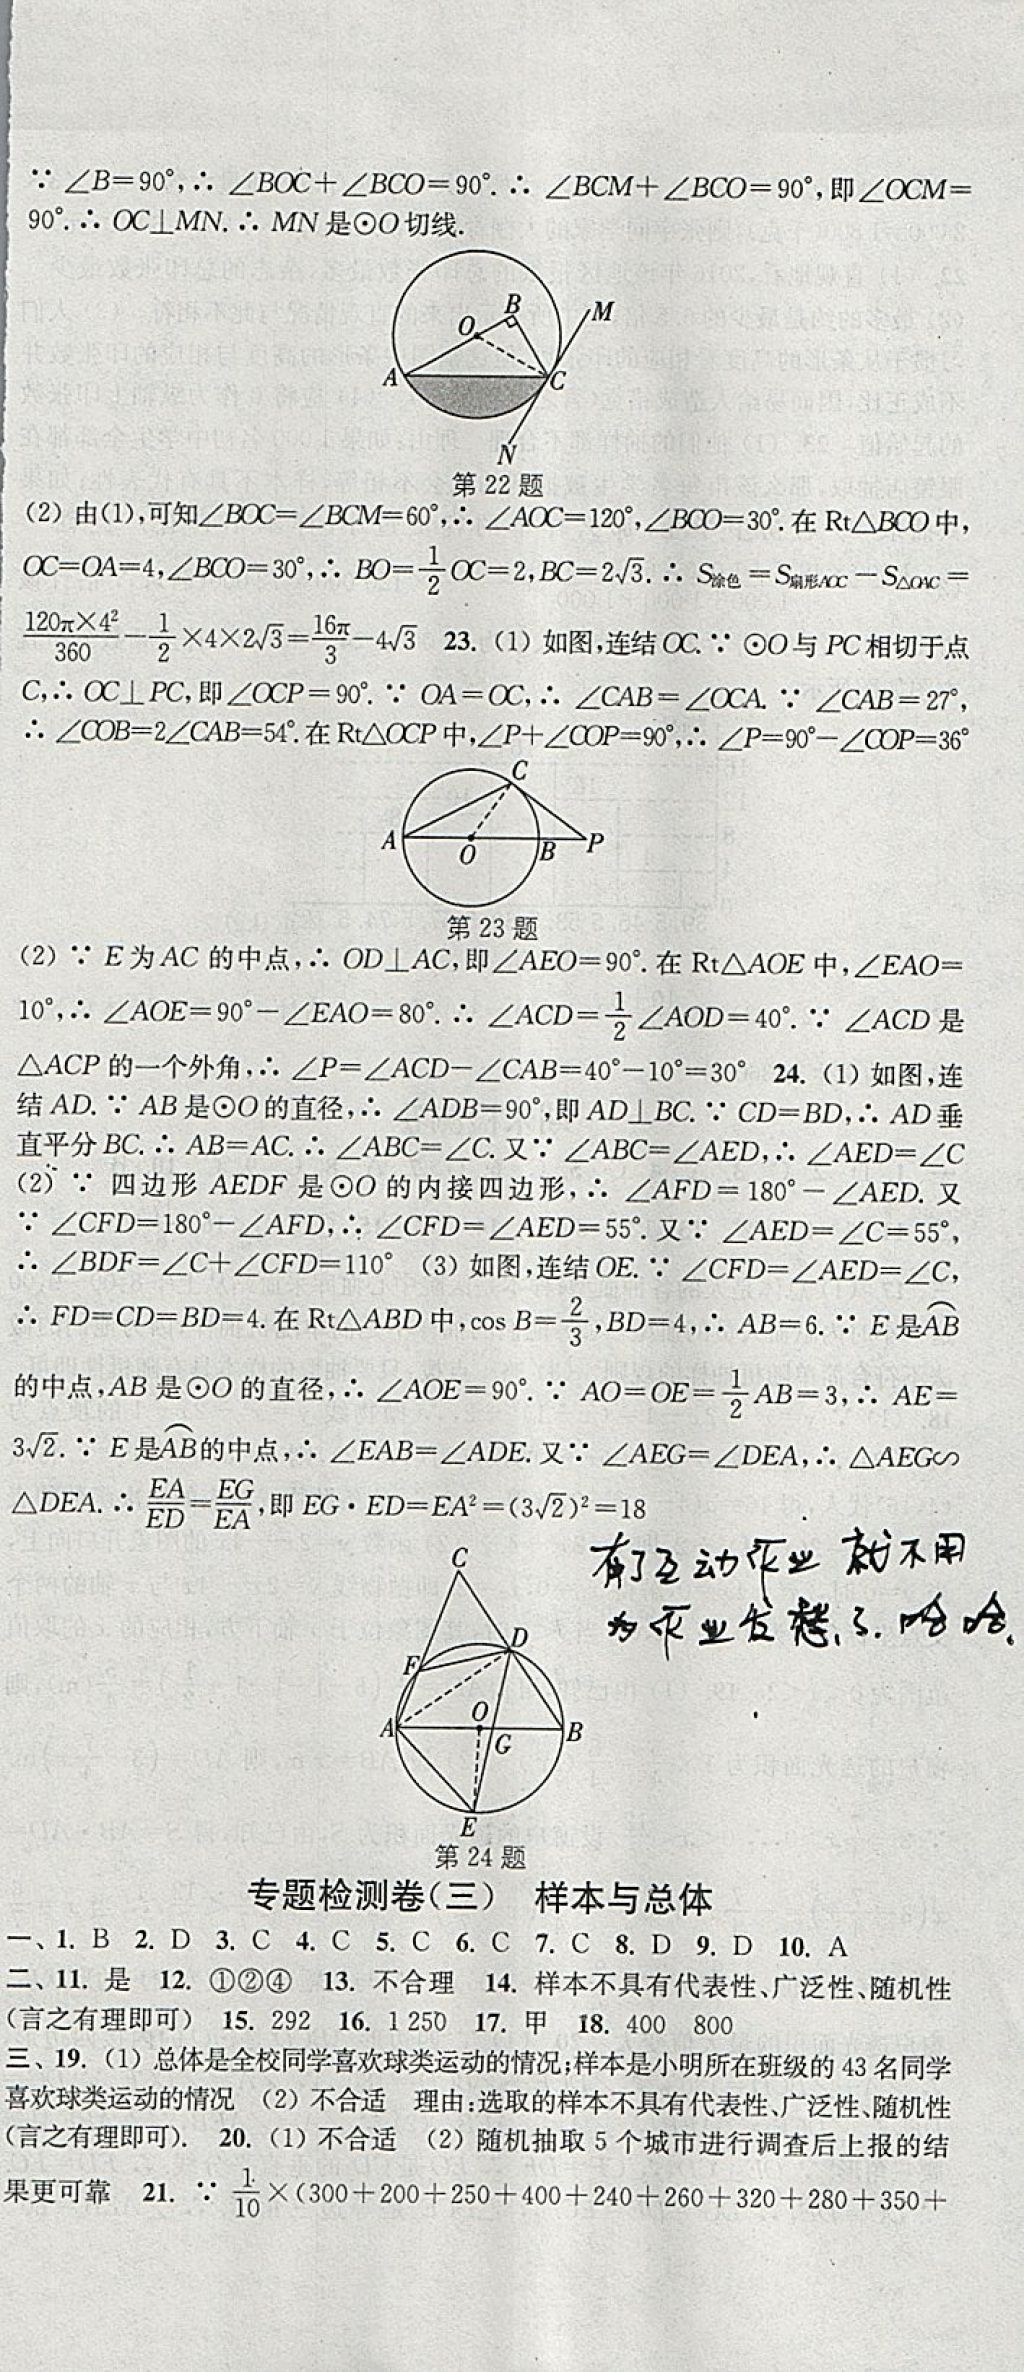 ∵ ∠B=90°,∴ ∠BOC+∠BCO=90°.∴ ∠BCM+∠BCO=90°,即∠OCM=
90°.∴ OC⊥MN.∴ MN是⊙O切线.
O B M A C N
第22题
(2) 由(1),可知∠BOC=∠BCM=60°,∴ ∠AOC=120°,∠BCO=30°.在Rt△BCO中,
OC=OA=4,∠BCO=30°,∴ BO=1/2OC=2,BC=2√3.∴ S涂色=S扇形AOC-S△OAC=
120π×4²/360-1/2×4×2√3=16π/3-4√3 23. (1) 如图,连结OC.∵ ⊙O与PC相切于点
C,∴ OC⊥PC,即∠OCP=90°.∵ OA=OC,∴ ∠CAB=∠OCA.∵ ∠CAB=27°,
∴ ∠COB=2∠CAB=54°.在Rt△OCP中,∠P+∠COP=90°,∴ ∠P=90°-∠COP=36°
C A O B P
第23题
(2) ∵ E为AC的中点,∴ OD⊥AC,即∠AEO=90°.在Rt△AOE中,∠EAO=
10°,∴ ∠AOE=90°-∠EAO=80°.∴ ∠ACD=1/2∠AOD=40°.∵ ∠ACD是
△ACP的一个外角,∴ ∠P=∠ACD-∠CAB=40°-10°=30° 24. (1) 如图,连
结AD.∵ AB是⊙O的直径,∴ ∠ADB=90°,即AD⊥BC.∵ CD=BD,∴ AD垂
直平分BC.∴ AB=AC.∴ ∠ABC=∠C.又∵ ∠ABC=∠AED,∴ ∠AED=∠C
(2) ∵ 四边形AEDF是⊙O的内接四边形,∴ ∠AFD=180°-∠AED.又
∵ ∠CFD=180°-∠AFD,∴ ∠CFD=∠AED=55°.又∵ ∠AED=∠C=55°,
∴ ∠BDF=∠C+∠CFD=110° (3) 如图,连结OE.∵ ∠CFD=∠AED=∠C,
∴ FD=CD=BD=4.在Rt△ABD中,cos B=2/3,BD=4,∴ AB=6.∵ E是A͡B
的中点,AB是⊙O的直径,∴ ∠AOE=90°.∵ AO=OE=1/2AB=3,∴ AE=
3√2.∵ E是A͡B的中点,∴ ∠EAB=∠ADE.又∵ ∠AEG=∠DEA,∴ △AEG∽
△DEA.∴ EA/ED=EG/EA,即EG·ED=EA²=(3√2)²=18
有了互动作业 就不用
为作业发愁了.哈哈.
C D F A O G B E
第24题
专题检测卷(三) 样本与总体
一、1. B 2. D 3. C 4. C 5. C 6. C 7. C 8. D 9. D 10. A
二、11. 是 12. ①②④ 13. 不合理 14. 样本不具有代表性、广泛性、随机性
(言之有理即可) 15. 292 16. 1 250 17. 甲 18. 400 800
三、19. (1) 总体是全校同学喜欢球类运动的情况;样本是小明所在班级的43名同学
喜欢球类运动的情况 (2) 不合适 理由:选取的样本不具有代表性、广泛性、随机性
(言之有理即可). 20. (1) 不合适 (2) 随机抽取5个城市进行调查后上报的结
果更可靠 21. ∵ 1/10×(300+200+250+400+240+260+320+280+350+